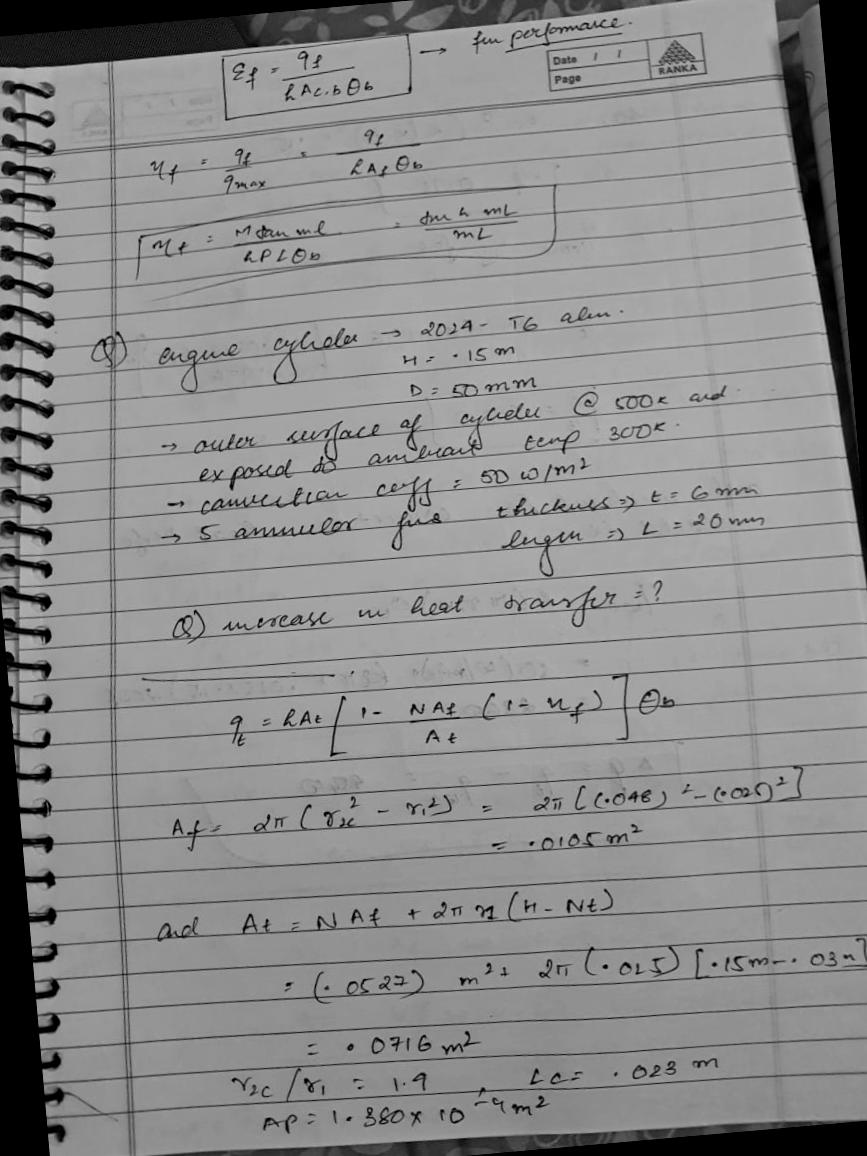 Ef = qf / hAc,bθb → fin performance.
Date / /
Page
RANKA
ηf = qf / qmax = qf / hAfθb
ηf = M tan mL / hPLθb = tan h mL / mL
Q) engine cylinder → 2024 - T6 alum.
H = .15 m
D = 50 mm
→ outer surface of cylinder @ 500K and
exposed to ambient temp 300K.
→ convection coeff = 50 W/m²
→ 5 annular fins thickness ⇒ t = 6 mm
length ⇒ L = 20 mm
Q) increase in heat transfer = ?
qt = hAt [ 1 - NAf / At (1 - ηf) ] θb
Af = 2π (r2c² - r1²) = 2π [(.048)² - (.025)²]
= .0105 m²
and At = NAf + 2π r1 (H - Nt)
= (.0527) m² + 2π (.025) [.15m - .03m]
= .0716 m²
r2c / r1 = 1.9 , Lc = .023 m
Ap = 1.380 × 10⁻⁴ m²